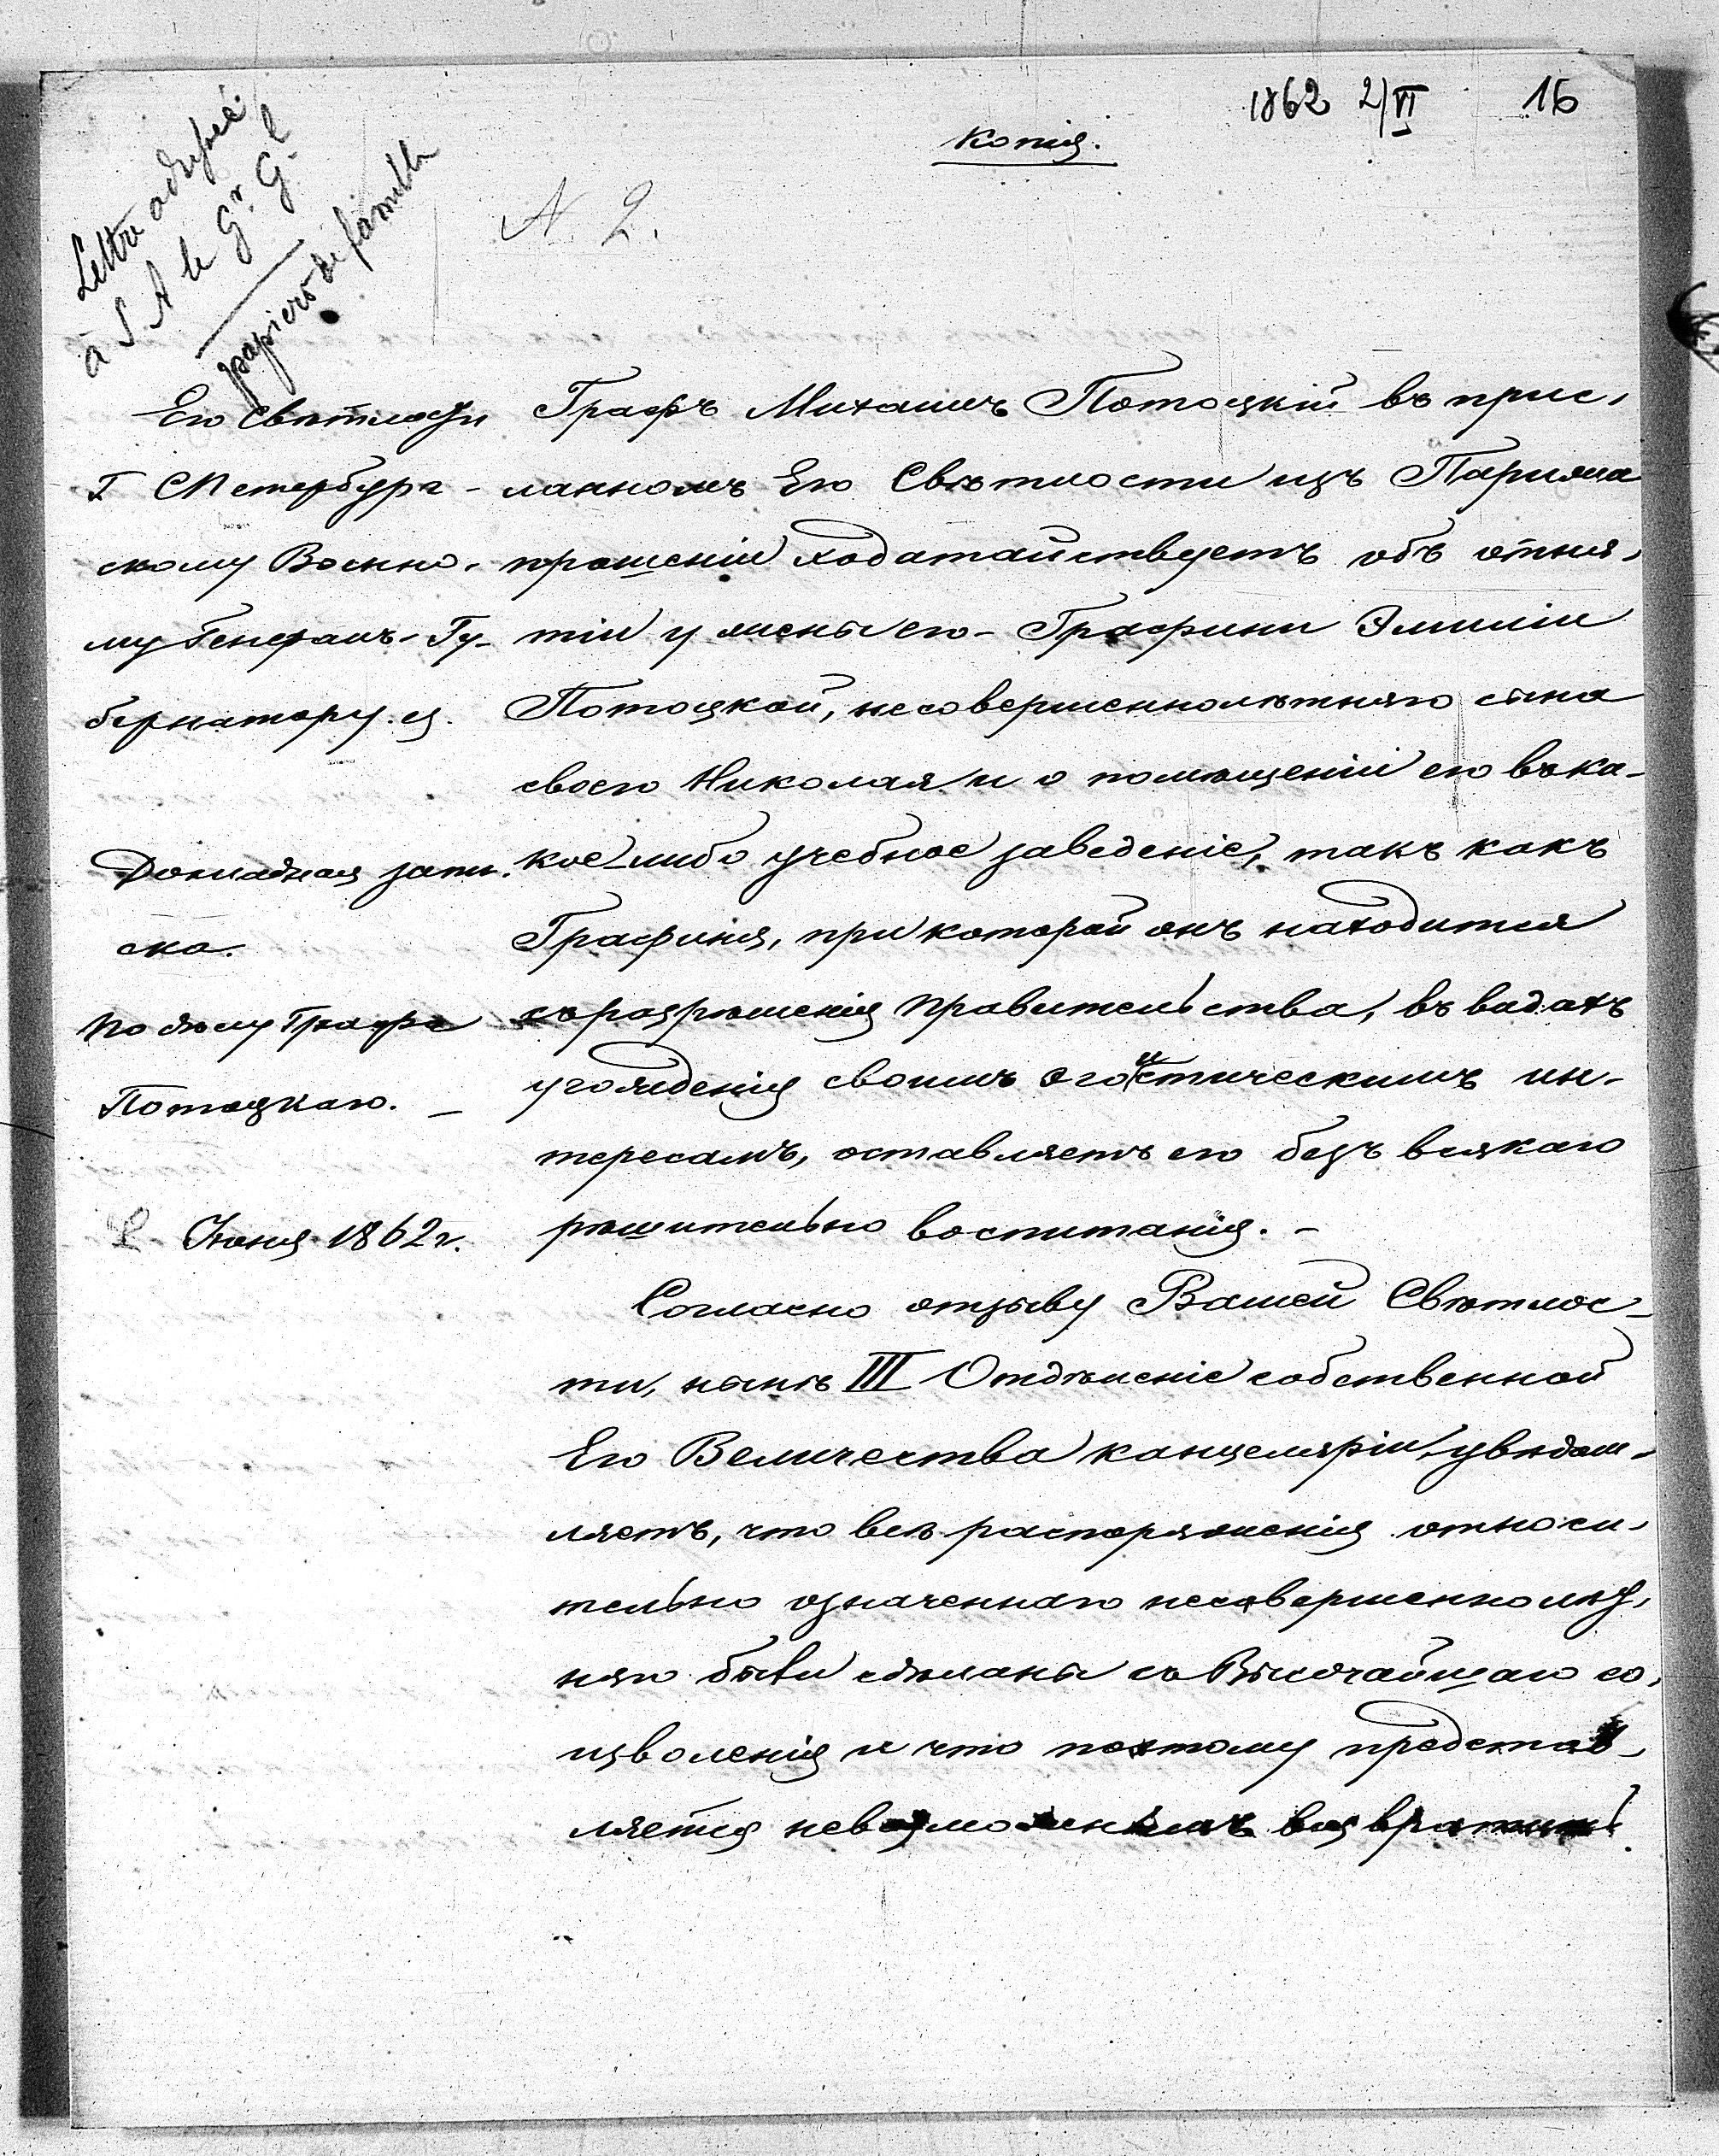 1862 2/VI 16
Копія.
N 2.
Lettre adressée
à S. A le Gr. Gl
papiers de famille
Его Свѣтлости
Г СПетербург-
скому Военно-
му Генералъ-Гу-
бернатору.
Докладная запи-
ска.
По дѣлу Графа
Потоцкаго. —
2 Іюня 1862 г.
Графъ Михаилъ Потоцкій въ прис-
ланномъ Его Свѣтлости изъ Парижа
прошеніи ходатайствуетъ объ отня-
тіи у жены его - Графини Эмиліи
Потоцкой, несовершеннолѣтняго сына
своего Николая и о помѣщеніи его въ ка-
кое-либо учебное заведеніе, такъ какъ
Графиня, при которой онъ находится
съ разрѣшенія Правительства, въ видахъ
угожденія своимъ эгоистическимъ ин-
тересамъ, оставляетъ его безъ всякаго
рѣшительно воспитанія. -
Согласно отзыву Вашей Свѣтлос-
ти, нынѣ III Отдѣленіе собственной
Его Величества канцеляріи, увѣдом-
ляетъ, что всѣ распоряженія относи-
тельно означеннаго несовершеннолѣт-
няго были сдѣланы съ Высочайшаго со-
изволенія и что поэтому представ-
ляется невозможнымъ возвратить